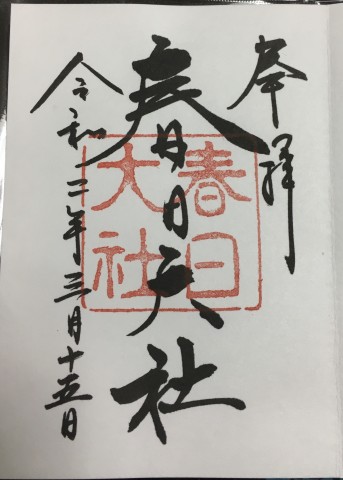 奉拝
春日大社
春日
大社
令和二年三月十五日